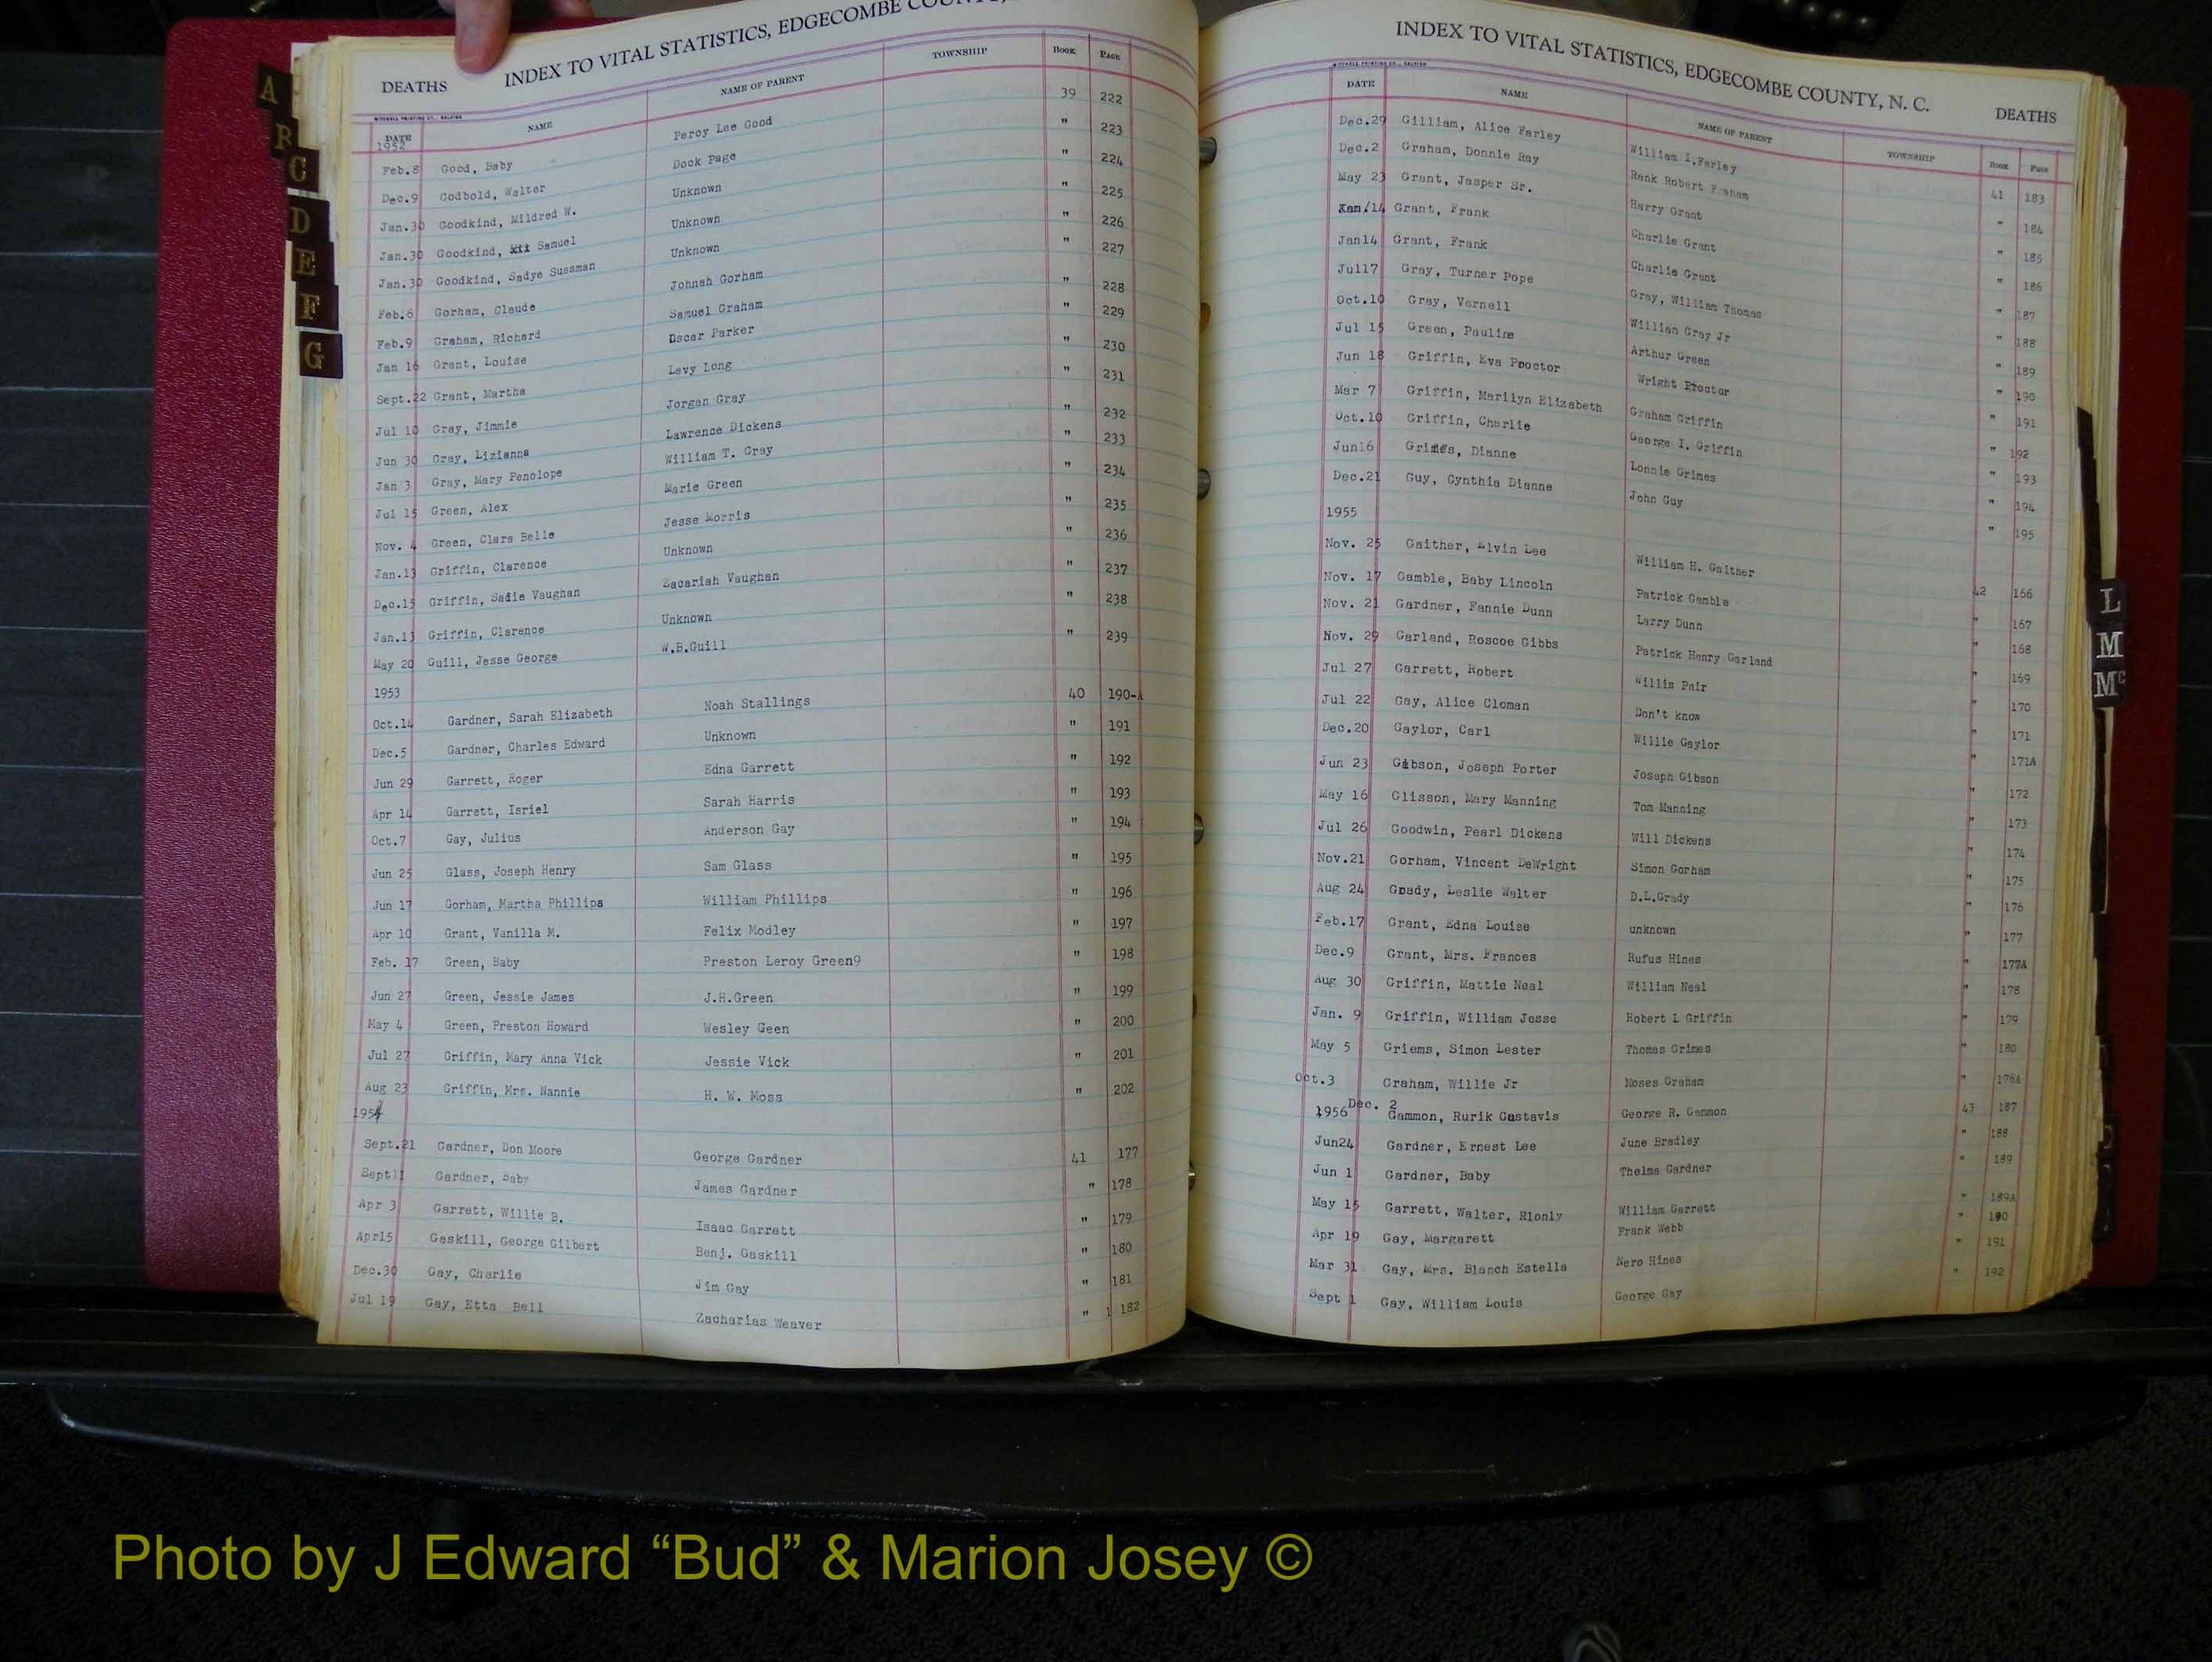 A
B
C
D
E
F
G
DEATHS INDEX TO VITAL STATISTICS, EDGECOMBE COUNTY,
MITCHELL PRINTING CO., RALEIGH
DATE NAME NAME OF PARENT TOWNSHIP BOOK PAGE
1952
Feb.8 Good, Baby Percy Lee Good 39 222
Dec.9 Godbold, Walter Dock Page " 223
Jan.30 Goodkind, Mildred W. Unknown " 224
Jan.30 Goodkind, Samuel Unknown " 225
Jan.30 Goodkind, Sadye Sussman Unknown " 226
Feb.6 Gorham, Claude Johnah Gorham " 227
Feb.9 Graham, Richard Samuel Graham " 228
Jan 16 Grant, Louise Oscar Parker " 229
Sept.22 Grant, Martha Levy Long " 230
Jul 10 Gray, Jimmie Jorgan Gray " 231
Jun 30 Gray, Lizianna Lawrence Dickens " 232
Jan 3 Gray, Mary Penolope William T. Gray " 233
Jul 15 Green, Alex Marie Green " 234
Nov. 4 Green, Clara Belle Jesse Morris " 235
Jan.13 Griffin, Clarence Unknown " 236
Dec.15 Griffin, Sadie Vaughan Zacariah Vaughan " 237
Jan.13 Griffin, Clarence Unknown " 238
May 20 Guill, Jesse George W.B.Guill " 239
1953
Oct.14 Gardner, Sarah Elizabeth Noah Stallings 40 190-A
Dec.5 Gardner, Charles Edward Unknown " 191
Jun 29 Garrett, Roger Edna Garrett " 192
Apr 14 Garrett, Isriel Sarah Harris " 193
Oct.7 Gay, Julius Anderson Gay " 194
Jun 25 Glass, Joseph Henry Sam Glass " 195
Jun 17 Gorham, Martha Phillips William Phillips " 196
Apr 10 Grant, Vanilla M. Felix Modley " 197
Feb. 17 Green, Baby Preston Leroy Green9 " 198
Jun 27 Green, Jessie James J.H.Green " 199
May 4 Green, Preston Howard Wesley Geen " 200
Jul 27 Griffin, Mary Anna Vick Jessie Vick " 201
Aug 23 Griffin, Mrs. Nannie H. W. Moss " 202
1954
Sept.21 Gardner, Don Moore George Gardner 41 177
Sept11 Gardner, Baby James Gardner " 178
Apr 3 Garrett, Willie B. Isaac Garrett " 179
Apr15 Gaskill, George Gilbert Benj. Gaskill " 180
Dec.30 Gay, Charlie Jim Gay " 181
Jul 19 Gay, Etta Bell Zacharias Weaver " 182
INDEX TO VITAL STATISTICS, EDGECOMBE COUNTY, N. C. DEATHS
MITCHELL PRINTING CO., RALEIGH
DATE NAME NAME OF PARENT TOWNSHIP BOOK PAGE
Dec.29 Gilliam, Alice Farley William I.Farley 41 183
Dec.2 Graham, Donnie Ray Rank Robert Fraham " 184
May 23 Grant, Jasper Sr. Harry Grant " 185
14 Grant, Frank Charlie Grant " 186
Jan14 Grant, Frank Charlie Grant " 187
Jul17 Gray, Turner Pope Gray, William Thomas " 188
Oct.10 Gray, Vernell William Gray Jr " 189
Jul 15 Green, Pauline Arthur Green " 190
Jun 18 Griffin, Eva Proctor Wright Proctor " 191
Mar 7 Griffin, Marilyn Elizabeth Graham Griffin " 192
Oct.10 Griffin, Charlie George I. Griffin " 193
Jun16 Grimes, Dianne Lonnie Grimes " 194
Dec.21 Guy, Cynthia Dianne John Guy " 195
1955
Nov. 25 Gaither, Alvin Lee William H. Gaither 42 166
Nov. 17 Gamble, Baby Lincoln Patrick Gamble " 167
Nov. 21 Gardner, Fannie Dunn Larry Dunn " 168
Nov. 29 Garland, Roscoe Gibbs Patrick Henry Garland " 169
Jul 27 Garrett, Robert Willis Pair " 170
Jul 22 Gay, Alice Cloman Don't know " 171
Dec.20 Gaylor, Carl Willie Gaylor " 171A
Jun 23 Gibson, Joseph Porter Joseph Gibson " 172
May 16 Glisson, Mary Manning Tom Manning " 173
Jul 26 Goodwin, Pearl Dickens Will Dickens " 174
Nov.21 Gorham, Vincent DeWright Simon Gorham " 175
Aug 24 Grady, Leslie Walter D.L.Grady " 176
Feb.17 Grant, Edna Louise unknown " 177
Dec.9 Grant, Mrs. Frances Rufus Hines " 177A
Aug 30 Griffin, Mattie Neal William Neal " 178
Jan. 9 Griffin, William Jesse Robert L Griffin " 179
May 5 Griems, Simon Lester Thomas Grimes " 180
Oct.3 Graham, Willie Jr Moses Graham " 176A
1956 Dec. 2 Gammon, Rurik Gustavis George R. Gammon 43 187
Jun24 Gardner, Ernest Lee June Bradley " 188
Jun 1 Gardner, Baby Thelma Gardner " 189
May 15 Garrett, Walter, Rlonly William Garrett " 189A
Apr 19 Gay, Margarett Frank Webb " 190
Mar 31 Gay, Mrs. Blanch Estella Nero Hines " 191
Sept 1 Gay, William Louis George Gay " 192
L
M
Mc
Photo by J Edward “Bud” & Marion Josey ©